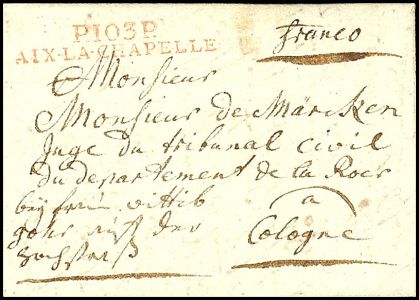 P103P
AIX-LA-CHAPELLE
franco
Monsieur
Monsieur de Märcken
Juge du tribunal civil
du departement de la Roer
bey frau wittib
auf der
a
Cologne